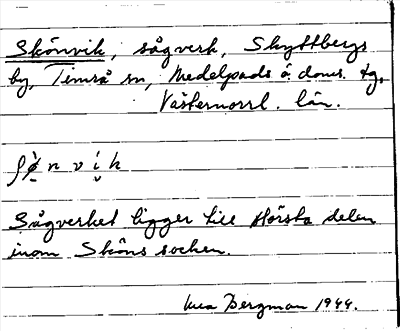 Skönvik, sågverk, Skyttbergs
by, Timrå sn, Medelpads ö. doms. tg,
Västernorrl. län.
ʃø̀nvík
Sågverket ligger till största delen
inom Sköns socken.
Bergman 1944.